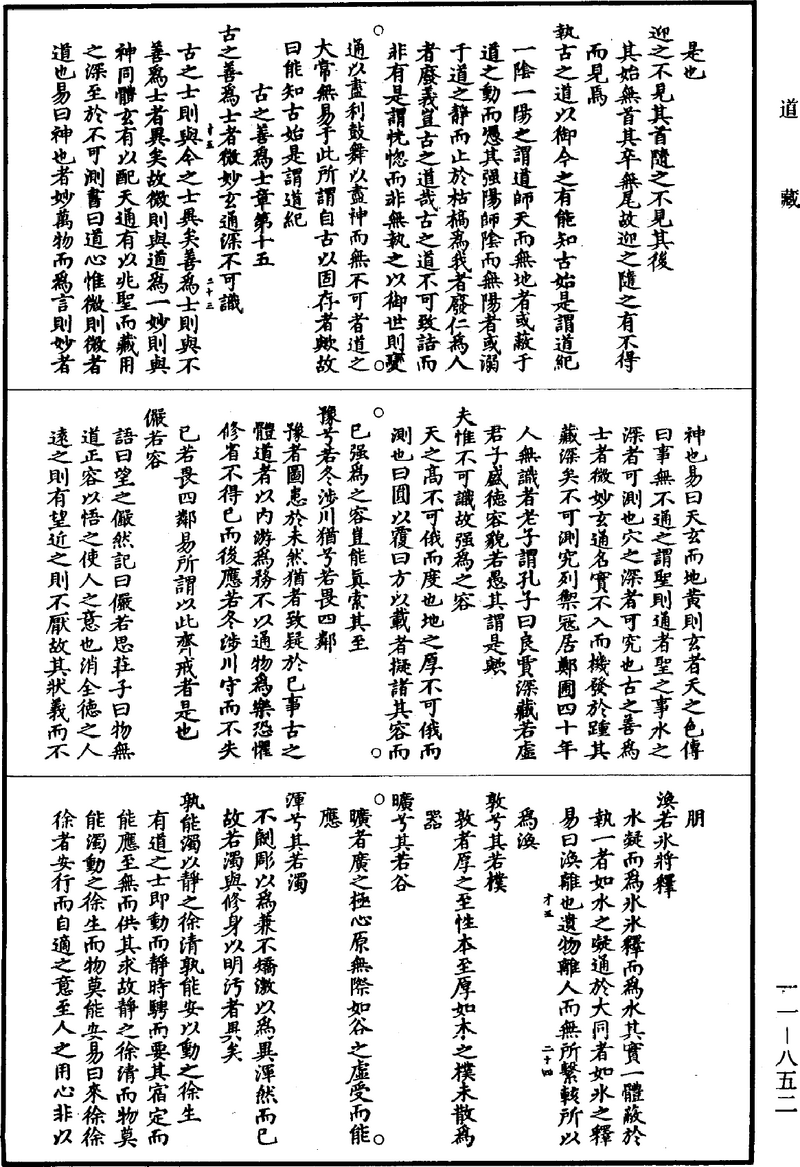 道藏
是也
迎之不見其首隨之不見其後
其始無首其卒無尾故迎之隨之有不得
而見焉
執古之道以御今之有能知古始是謂道紀
一陰一陽之謂道師天而無地者或蔽于
道之動而憑其强陽師陰而無陽者或溺
于道之靜而止於枯槁為我者廢仁為人
者廢義豈古之道哉古之道不可致詰而
非有是謂恍惚而非無執之以御世則變
通以盡利鼓舞以盡神而無不可者道之
大常無易于此所謂自古以固存者歟故
曰能知古始是謂道紀
古之善為士章第十五
古之善為士者微妙玄通深不可識
十五
二十三
古之士則與今之士異矣善為士則與不
善為士者異矣故微則與道為一妙則與
神同體玄有以配天通有以兆聖而藏用
之深至於不可測書曰道心惟微則微者
道也易曰神也者妙萬物而為言則妙者
神也易曰天玄而地黃則玄者天之色傳
曰事無不通之謂聖則通者聖之事水之
深者可測也穴之深者可究也古之善為
士者微妙玄通名實不入而機發於踵其
藏深矣不可測究列禦冠居鄭圃四十年
人無識者老子謂孔子曰良賈深藏若虛
君子盛德容貌若愚其謂是歟
夫惟不可識故强為之容
天之高不可俄而度也地之厚不可俄而
測也曰圓以覆曰方以載者擬諸其容而
已强為之容豈能真索其至
豫兮若冬涉川猶兮若畏四鄰
豫者圖患於未然猶者致疑於已事古之
體道者以內游為務不以通物為樂恐懼
修省不得已而後應若冬涉川守而不失
已若畏四鄰易所謂以此齊戒者是也
儼若容
語曰望之儼然記曰儼若思莊子曰物無
道正容以悟之使人之意也消全德之人
遠之則有望近之則不厭故其狀義而不
朋
渙若氷將釋
水凝而為氷氷釋而為水其實一體蔽於
執一者如水之凝通於大同者如氷之釋
易曰渙離也遺物離人而無所繫輆所以
才五
二十四
為渙
敦兮其若樸
敦者厚之至性本至厚如木之樸未散為
器
曠兮其若谷
曠者廣之極心原無際如谷之虛受而能
應
渾兮其若濁
不劌彫以為兼不矯激以為異渾然而已
故若濁與修身以明汚者異矣
孰能濁以靜之徐清孰能安以動之徐生
有道之士即動而靜時騁而要其宿定而
能應至無而供其求故靜之徐清而物莫
能濁動之徐生而物莫能安易曰來徐徐
徐者安行而自適之意至人之用心非以
一一—八五二